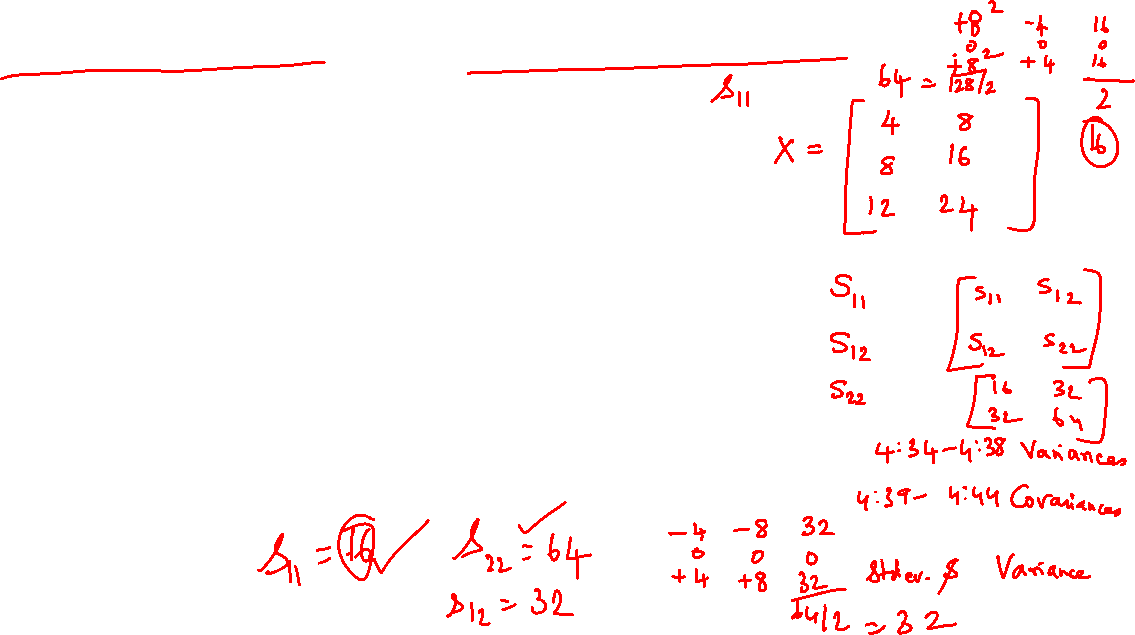 +8² -4 16
0 0 0
+8² +4 16
64 = 128/2 2
S11 16
X = [ 4 8
8 16
12 24 ]
S11 [ S11 S12
S12 S12 S22 ]
S22 [ 16 32
32 64 ]
4:34-4:38 Variances
4:39- 4:44 Covariances
S11 = 16 S22 = 64
S12 = 32
-4 -8 32
0 0 0
+4 +8 32
64/2 = 32
Stdev. $ Variance